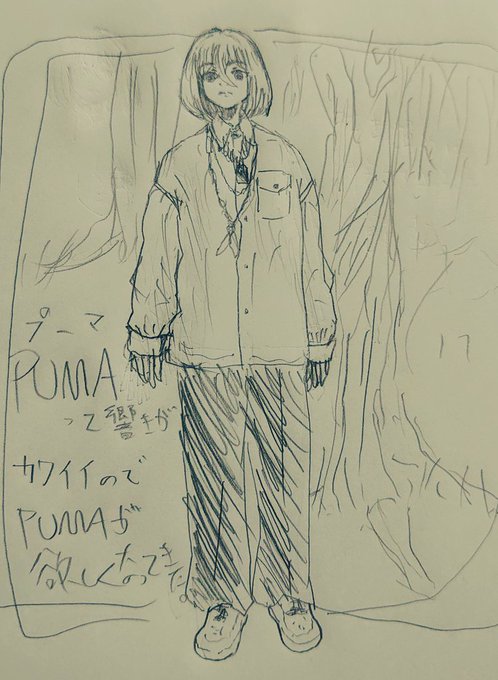 プーマ
PUMA
って響きが
カワイイので
PUMAが
欲しくなってきた。
17